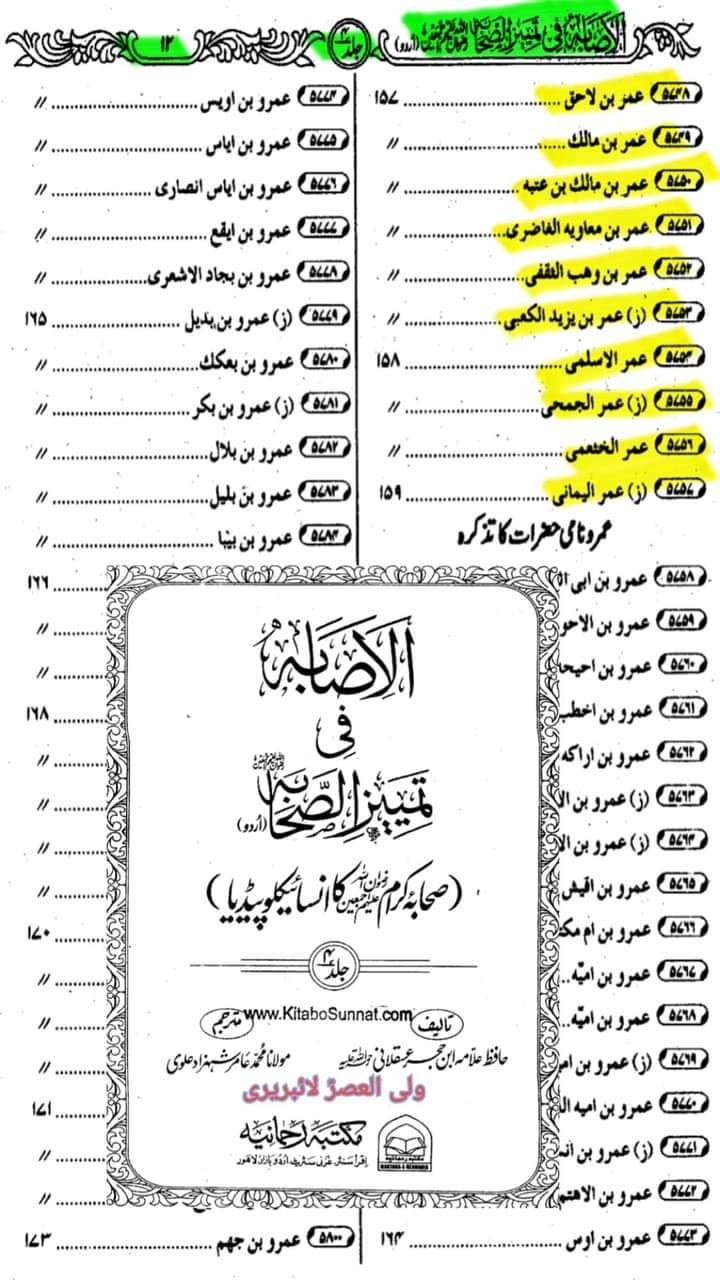 الاصابه فی تمییز الصحابه (اُردو) جلد ۴ ۱۲
۵۷۴۸ عمر بن لاحق ۱۵۷
۵۷۴۹ عمر بن مالک 〃
۵۷۵۰ عمر بن مالک بن عتبه 〃
۵۷۵۱ عمر بن معاویه الغاضری 〃
۵۷۵۲ عمر بن وهب الثقفی 〃
۵۷۵۳ (ز) عمر بن یزید الکعبی 〃
۵۷۵۴ عمر الاسلمی ۱۵۸
۵۷۵۵ (ز) عمر الجمحی 〃
۵۷۵۶ عمر الخثعمی 〃
۵۷۵۷ (ز) عمر الیمانی ۱۵۹
عمرو نامی حضرات کا تذکرہ
۵۷۵۸ عمرو بن ابی
۵۷۵۹ عمرو بن الاحو
۵۷۶۰ عمرو بن احیحا
۵۷۶۱ عمرو بن اخطب
۵۷۶۲ عمرو بن اراکه
۵۷۶۳ (ز) عمرو بن الا
۵۷۶۴ (ز) عمرو بن الا
۵۷۶۵ عمرو بن اقیش
۵۷۶۶ عمرو بن ام مکت
۵۷۶۷ عمرو بن امیّه
۵۷۶۸ عمرو بن امیّه
۵۷۶۹ (ز) عمرو بن ام
۵۷۷۰ عمرو بن امیه ال
۵۷۷۱ (ز) عمرو بن انـ
۵۷۷۲ عمرو بن الاهتم
۵۷۷۳ عمرو بن اوس ۱۶۴
۵۷۷۴ عمرو بن اویس 〃
۵۷۷۵ عمرو بن ایاس 〃
۵۷۷۶ عمرو بن ایاس انصاری 〃
۵۷۷۷ عمرو بن ایفع 〃
۵۷۷۸ عمرو بن بجاد الاشعری 〃
۵۷۷۹ (ز) عمرو بن بدیل ۱۶۵
۵۷۸۰ عمرو بن بعکک 〃
۵۷۸۱ (ز) عمرو بن بکر 〃
۵۷۸۲ عمرو بن بلال 〃
۵۷۸۳ عمرو بن بلیل 〃
۵۷۸۴ عمرو بن بیبا 〃
۱۶۶
〃
〃
۱۶۸
〃
〃
〃
〃
۱۷۰
〃
〃
〃
۱۷۱
〃
〃
۵۸۰۰ عمرو بن جهم ۱۷۳
الاصابه
فی
تمییز الصحابه (اُردو)
(صحابۂ کرام رضوان اللہ علیہم اجمعین کا انسائیکلوپیڈیا)
جلد ۴
www.KitaboSunnat.com
تالیف مترجم
حافظ علامہ ابن حجر عسقلانی رحمۃ اللہ علیہ مولانا محمد عامر شہزاد علوی
ولی العصرؑ لائبریری
مکتبہ رحمانیہ
اقرأ سنٹر غزنی سٹریٹ اردو بازار لاہور
MAKTABA-E-REHMANIA